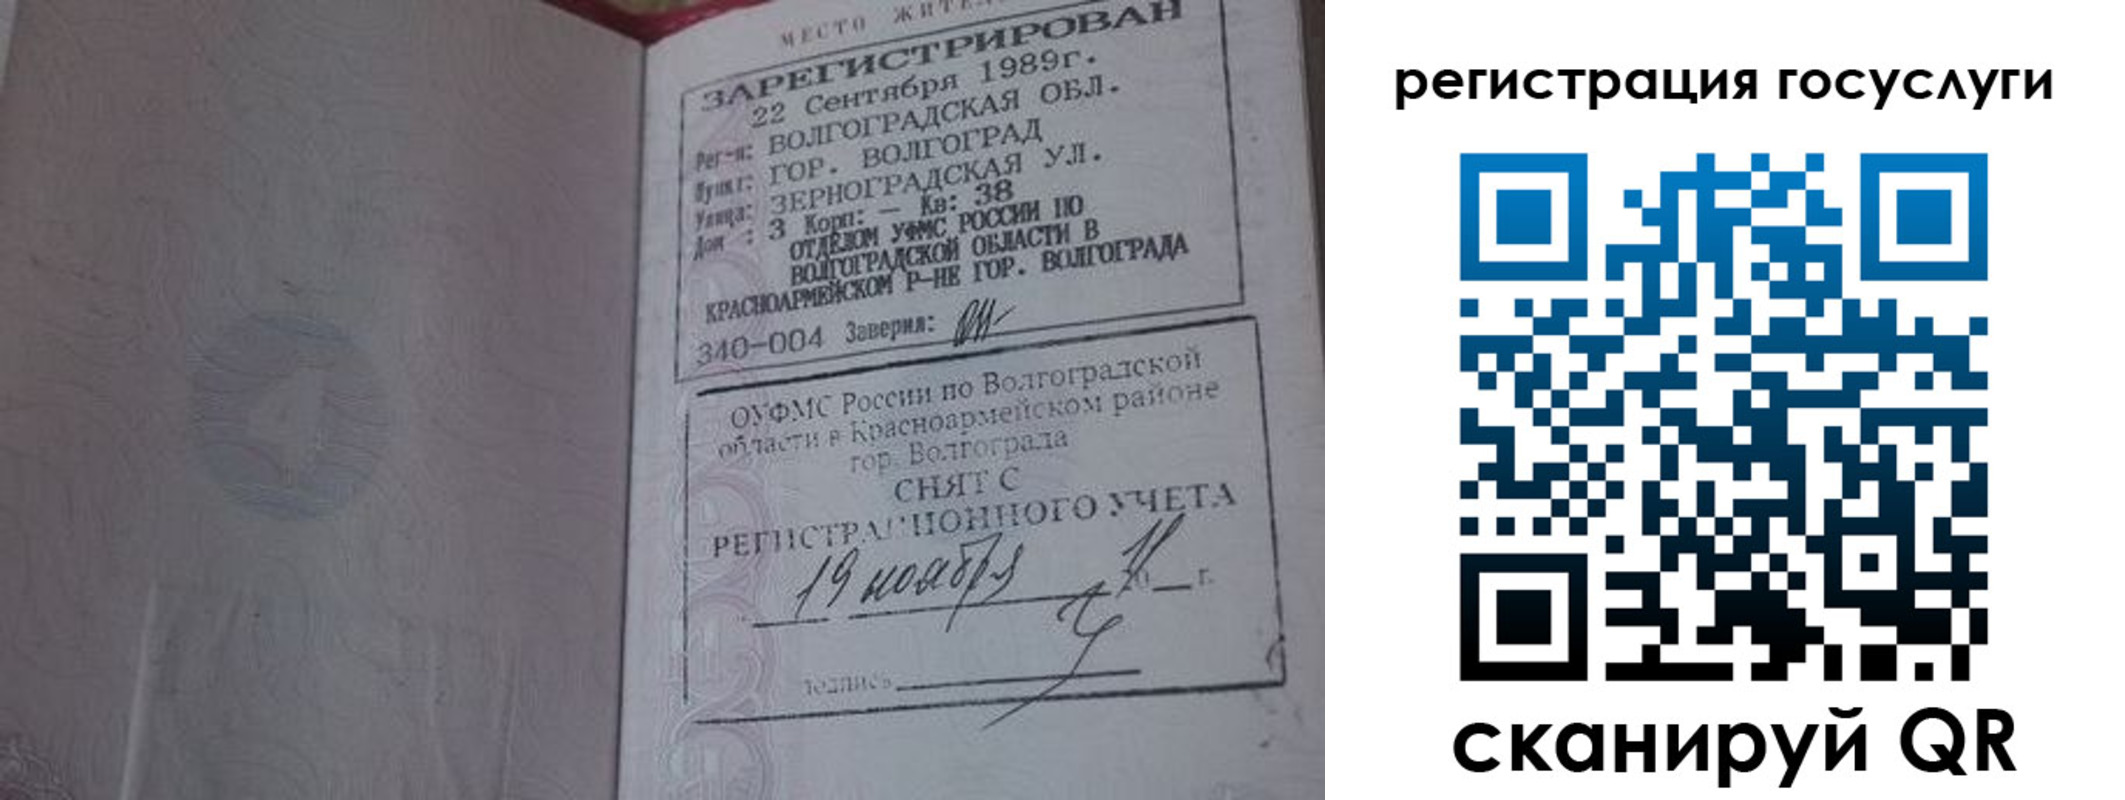 МЕСТО ЖИТЕЛ
ЗАРЕГИСТРИРОВАН
22 Сентября 1989г.
Рег-н: ВОЛГОГРАДСКАЯ ОБЛ.
Пункт: ГОР. ВОЛГОГРАД
Улица: ЗЕРНОГРАДСКАЯ УЛ.
Дом : 3 Корп: — Кв: 38
ОТДЕЛОМ УФМС РОССИИ ПО
ВОЛГОГРАДСКОЙ ОБЛАСТИ В
КРАСНОАРМЕЙСКОМ Р-НЕ ГОР. ВОЛГОГРАДА
340-004 Заверил:
ОУФМС России по Волгоградской
области в Красноармейском районе
гор. Волгограда
СНЯТ С
РЕГИСТРАЦИОННОГО УЧЕТА
19 ноября 20 г.
подпись
регистрация госуслуги
сканируй QR